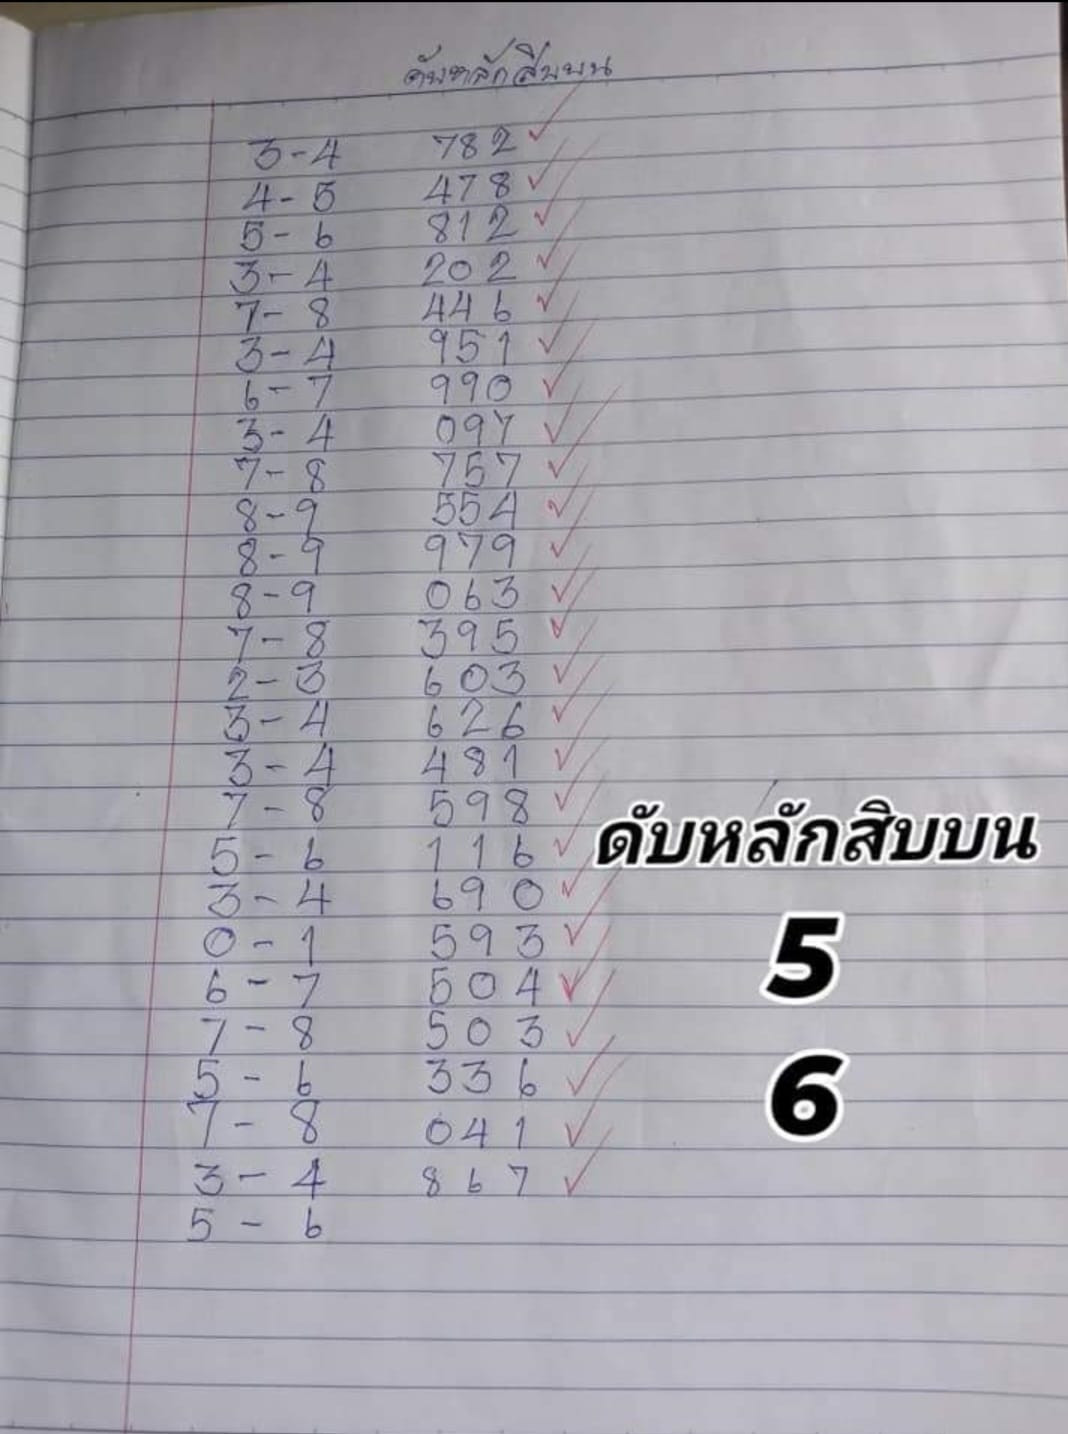 ดับหลักสิบบน
3-4 782
4-5 478
5-6 812
3-4 202
7-8 446
3-4 951
6-7 990
3-4 097
7-8 757
8-9 554
8-9 979
8-9 063
7-8 395
2-3 603
3-4 626
3-4 481
7-8 598
5-6 116
3-4 690
0-1 593
6-7 504
7-8 503
5-6 336
7-8 041
3-4 867
5-6
ดับหลักสิบบน
5
6